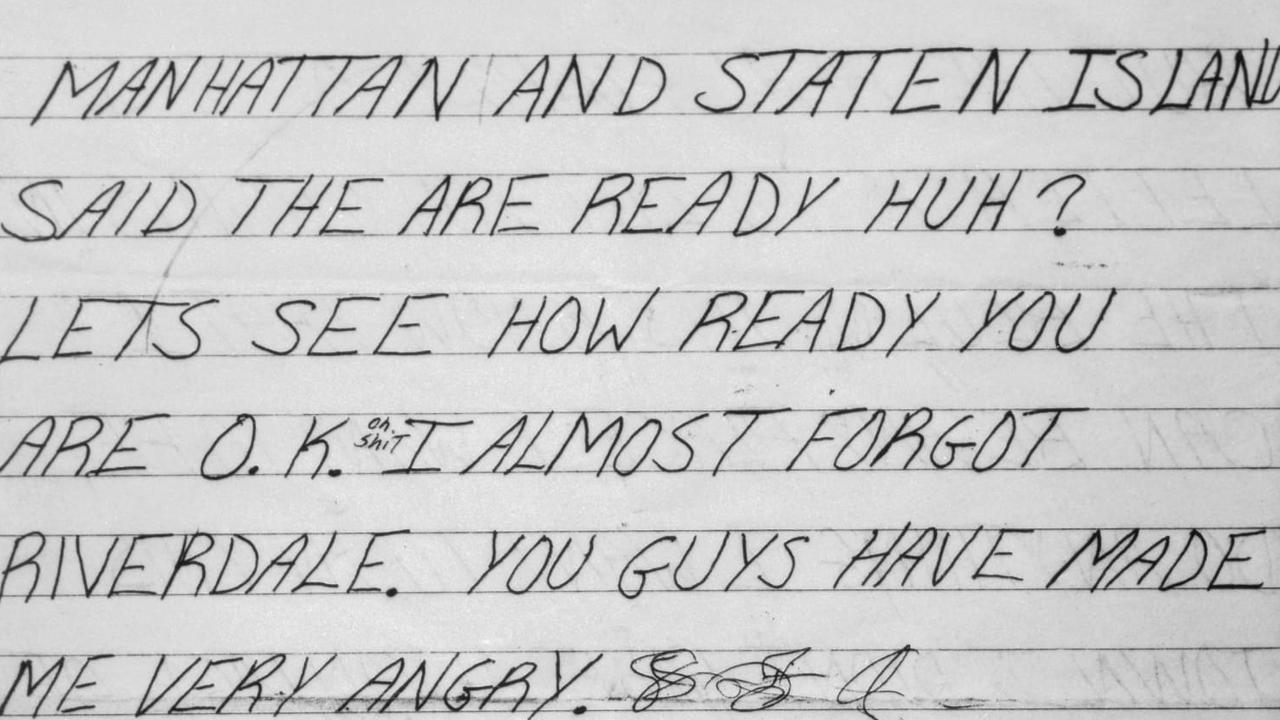 MANHATTAN AND STATEN ISLAND
SAID THE ARE READY HUH?
LETS SEE HOW READY YOU
ARE O.K. oh. shiT I ALMOST FORGOT
RIVERDALE. YOU GUYS HAVE MADE
ME VERY ANGRY.